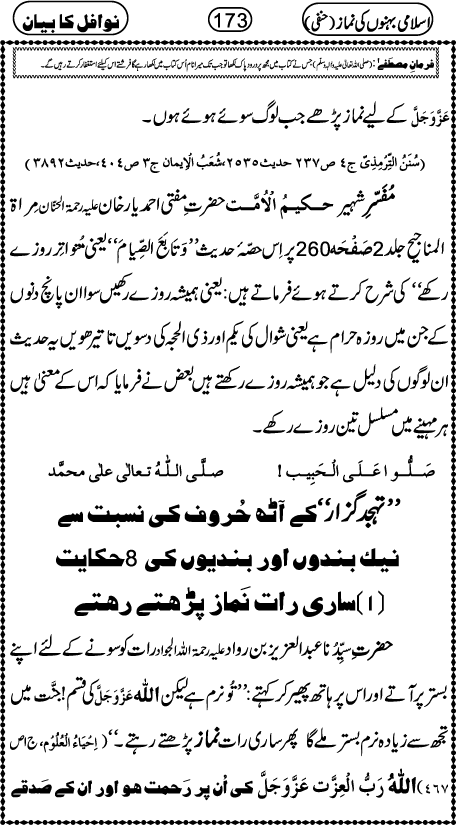 اسلامی بہنوں کی نماز (حنفی) 173 نوافل کا بیان
فرمانِ مصطفٰے: (صلی اللہ تعالیٰ علیہ واٰلہٖ وسلّم) جس نے کتاب میں مجھ پر درود پاک لکھا تو جب تک میرا نام اُس کتاب میں لکھا رہے گا فرشتے اس کیلئے استغفار کرتے رہیں گے۔
عَزَّوَجَلَّ کے لیے نماز پڑھے جب لوگ سوئے ہوئے ہوں۔
(سُنَنُ التِّرْمِذِیّ ج٤ ص ٢٣٧ حدیث ٢٥٣٥، شُعَبُ الْاِیمان ج٣ ص ٤٠٤، حدیث ٣٨٩٢)
مُفَسّرِ شہیر حکیمُ الْاُمَّت حضرتِ مفتی احمد یار خان علیہ رحمۃ الحنّان مِراۃ
المناجیح جلد 2 صَفْحَہ 260 پر اِس حصۂ حدیث ’’وَتَابَعَ الصِّیَامَ‘‘ یعنی مُتَواتِر روزے
رکھے‘‘ کی شرح کرتے ہوئے فرماتے ہیں: یعنی ہمیشہ روزے رکھیں سوا ان پانچ دنوں
کے جن میں روزہ حرام ہے یعنی شوال کی یکم اور ذی الحجہ کی دسویں تا تیرھویں یہ حدیث
ان لوگوں کی دلیل ہے جو ہمیشہ روزے رکھتے ہیں بعض نے فرمایا کہ اس کے معنیٰ ہیں
ہر مہینے میں مسلسل تین روزے رکھے۔
صَلُّوا عَلَی الْحَبِیب ! صلَّی اللّٰہُ تعالٰی علٰی محمَّد
’’تہجد گزار‘‘ کے آٹھ حُروف کی نسبت سے
نیک بندوں اور بندیوں کی 8 حکایت
(١) ساری رات نَماز پڑھتے رھتے
حضرتِ سیِّدُنا عبدالعزیز بن رواد علیہ رحمۃ اللہ الجواد رات کو سونے کے لئے اپنے
بستر پر آتے اور اس پر ہاتھ پھیر کر کہتے: ’’تُو نرم ہے لیکن اللّٰہ عَزَّوَجَلَّ کی قسم! جنّت میں
تجھ سے زیادہ نرم بستر ملے گا پھر ساری رات نماز پڑھتے رہتے۔‘‘ (اِحْیَاءُ الْعُلُوْم، ج١ ص
٤٦٧) اللّٰہُ رَبُّ الْعِزَّت عَزَّوَجَلَّ کی اُن پر رَحمت ھو اور ان کے صدقے